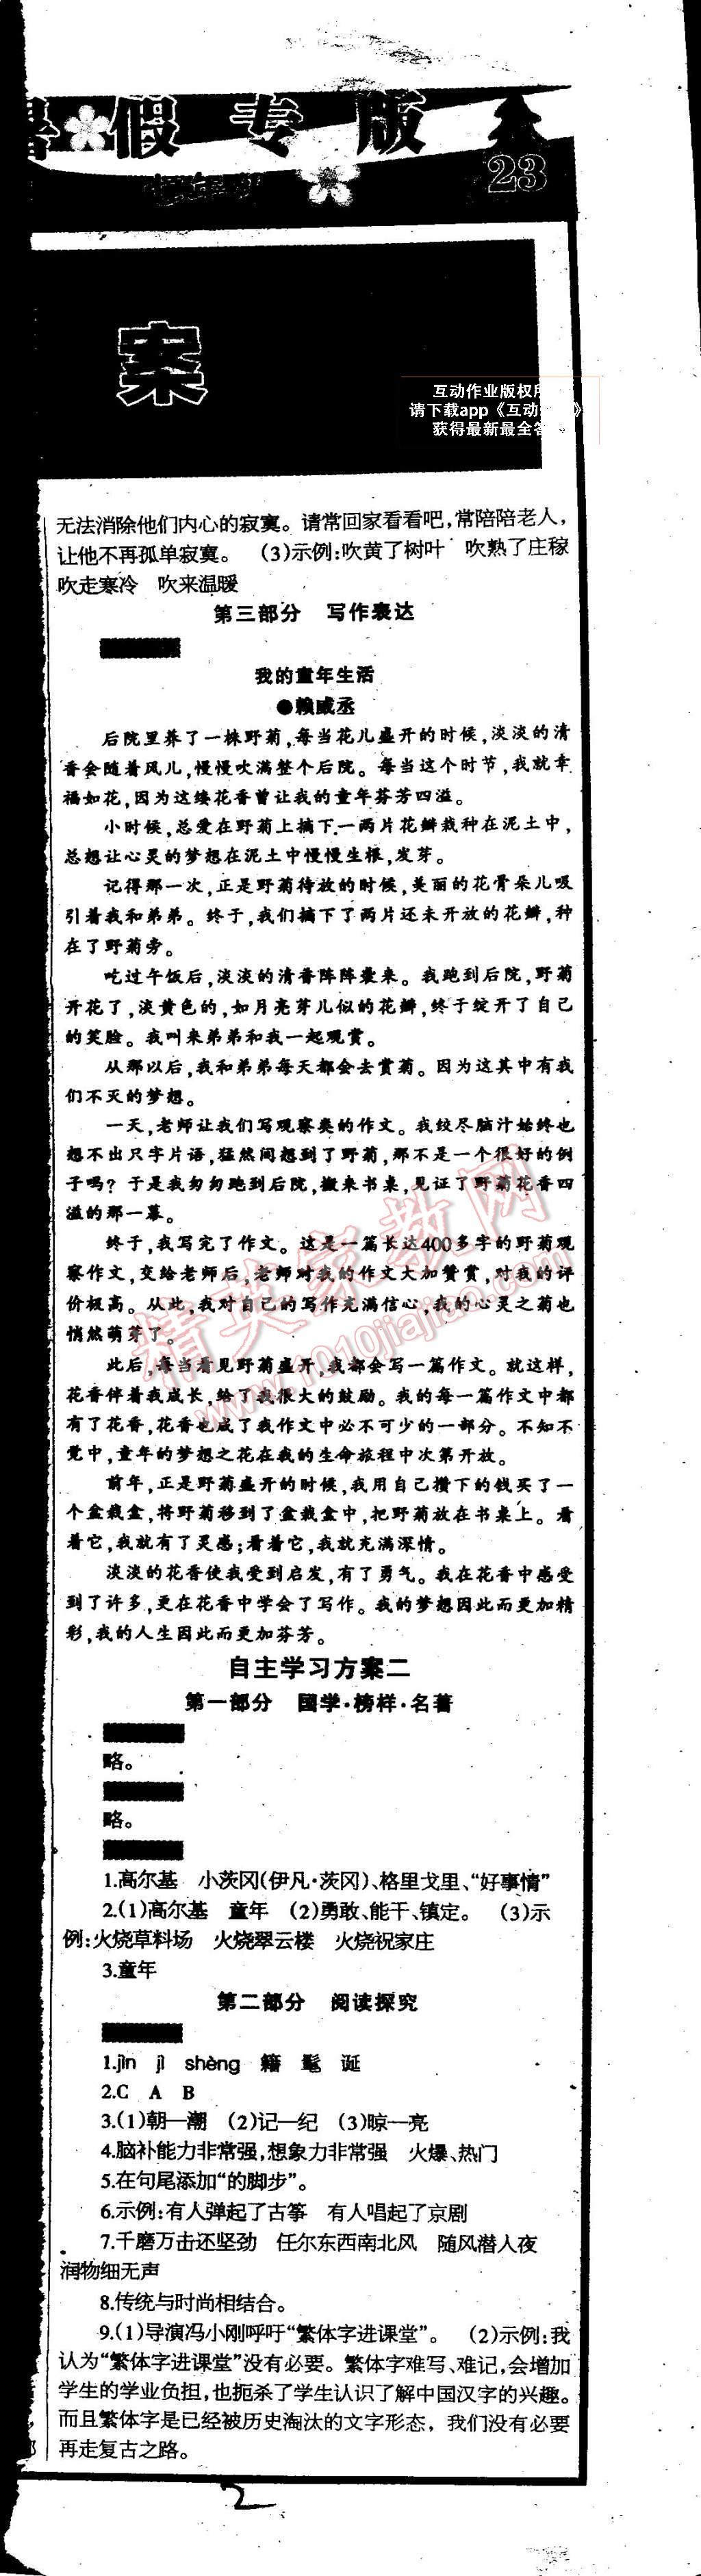 暑假专版
23
案
互动作业版权所
请下载app《互动》
获得最新最全答
无法消除他们内心的寂寞。请常回家看看吧,常陪陪老人,
让他不再孤单寂寞。 (3)示例:吹黄了树叶 吹熟了庄稼
吹走寒冷 吹来温暖
第三部分 写作表达
我的童年生活
●赖威丞
后院里养了一株野菊,每当花儿盛开的时候,淡淡的清
香会随着风儿,慢慢吹满整个后院。每当这个时节,我就幸
福如花,因为这缕花香曾让我的童年芬芳四溢。
小时候,总爱在野菊上摘下一两片花瓣栽种在泥土中,
总想让心灵的梦想在泥土中慢慢生根,发芽。
记得那一次,正是野菊待放的时候,美丽的花骨朵儿吸
引着我和弟弟。终于,我们摘下了两片还未开放的花瓣,种
在了野菊旁。
吃过午饭后,淡淡的清香阵阵袭来。我跑到后院,野菊
开花了,淡黄色的,如月亮芽儿似的花瓣,终于绽开了自己
的笑脸。我叫来弟弟和我一起观赏。
从那以后,我和弟弟每天都会去赏菊。因为这其中有我
们不灭的梦想。
一天,老师让我们写观察类的作文。我绞尽脑汁始终也
想不出只字片语,猛然间想到了野菊,那不是一个很好的例
子吗?于是我匆匆跑到后院,搬来书桌,见证了野菊花香四
溢的那一幕。
终于,我写完了作文。这是一篇长达400多字的野菊观
察作文,交给老师后,老师对我的作文大加赞赏,对我的评
价极高。从此,我对自己的写作充满信心,我的心灵之菊也
悄然萌芽了。
此后,每当看见野菊盛开,我都会写一篇作文。就这样,
花香伴着我成长,给了我很大的鼓励。我的每一篇作文中都
有了花香,花香也成了我作文中必不可少的一部分。不知不
觉中,童年的梦想之花在我的生命旅程中次第开放。
前年,正是野菊盛开的时候,我用自己攒下的钱买了一
个盆栽盒,将野菊移到了盆栽盒中,把野菊放在书桌上。看
着它,我就有了灵感;看着它,我就充满深情。
淡淡的花香使我受到启发,有了勇气。我在花香中感受
到了许多,更在花香中学会了写作。我的梦想因此而更加精
彩,我的人生因此而更加芬芳。
自主学习方案二
第一部分 国学·榜样·名著
略。
略。
1.高尔基 小茨冈(伊凡·茨冈)、格里戈里、“好事情”
2.(1)高尔基 童年 (2)勇敢、能干、镇定。 (3)示
例:火烧草料场 火烧翠云楼 火烧祝家庄
3.童年
第二部分 阅读探究
1.jìn jì shèng 籍 髦 诞
2.C A B
3.(1)朝—潮 (2)记—纪 (3)晾—亮
4.脑补能力非常强,想象力非常强 火爆、热门
5.在句尾添加“的脚步”。
6.示例:有人弹起了古筝 有人唱起了京剧
7.千磨万击还坚劲 任尔东西南北风 随风潜入夜
润物细无声
8.传统与时尚相结合。
9.(1)导演冯小刚呼吁“繁体字进课堂”。 (2)示例:我
认为“繁体字进课堂”没有必要。繁体字难写、难记,会增加
学生的学业负担,也扼杀了学生认识了解中国汉字的兴趣。
而且繁体字是已经被历史淘汰的文字形态,我们没有必要
再走复古之路。
精英家教网
www.1010jiajiao.com
2